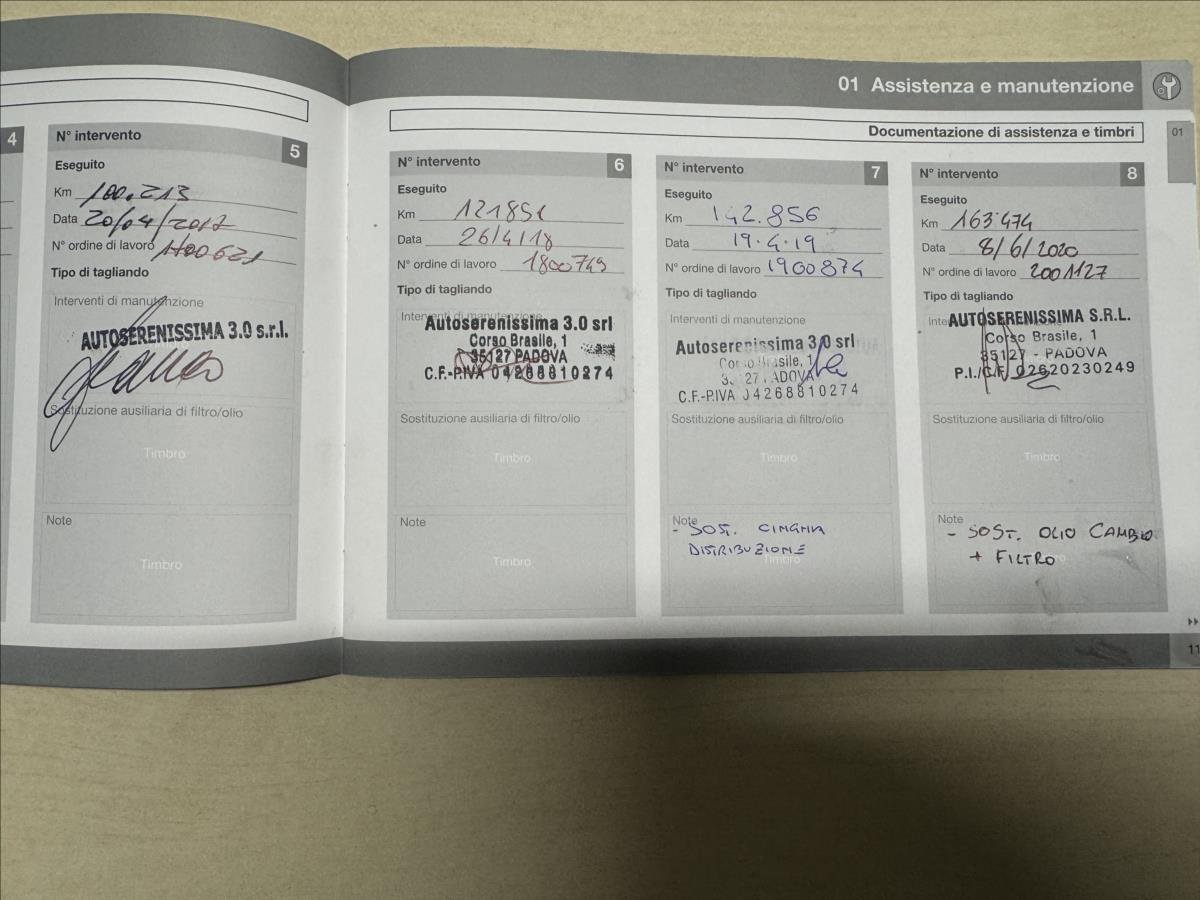 01 Assistenza e manutenzione
Documentazione di assistenza e timbri
01
4
N° intervento 5
Eseguito
Km 100.213
Data 20/04/2017
N° ordine di lavoro
Tipo di tagliando
Interventi di manutenzione
AUTOSERENISSIMA 3.0 s.r.l.
Sostituzione ausiliaria di filtro/olio
Timbro
Note
Timbro
N° intervento 6
Eseguito
Km 121851
Data 26/4/18
N° ordine di lavoro 1800749
Tipo di tagliando
Interventi di manutenzione
Autoserenissima 3.0 srl
Corso Brasile, 1
35127 PADOVA
C.F.-P.IVA 04268810274
Sostituzione ausiliaria di filtro/olio
Timbro
Note
Timbro
N° intervento 7
Eseguito
Km 142.856
Data 19.4.19
N° ordine di lavoro 1900874
Tipo di tagliando
Interventi di manutenzione
Autoserenissima 3.0 srl
Corso Brasile, 1
35127 PADOVA
C.F.-P.IVA 04268810274
Sostituzione ausiliaria di filtro/olio
Timbro
Note
- SOST. CINGHIA
DISTRIBUZIONE
Timbro
N° intervento 8
Eseguito
Km 163474
Data 8/6/2020
N° ordine di lavoro 2001127
Tipo di tagliando
AUTOSERENISSIMA S.R.L.
Corso Brasile, 1
35127 - PADOVA
P.I./C.F. 02620230249
Sostituzione ausiliaria di filtro/olio
Timbro
Note
- SOST. OLIO CAMBIO
+ FILTRO
11